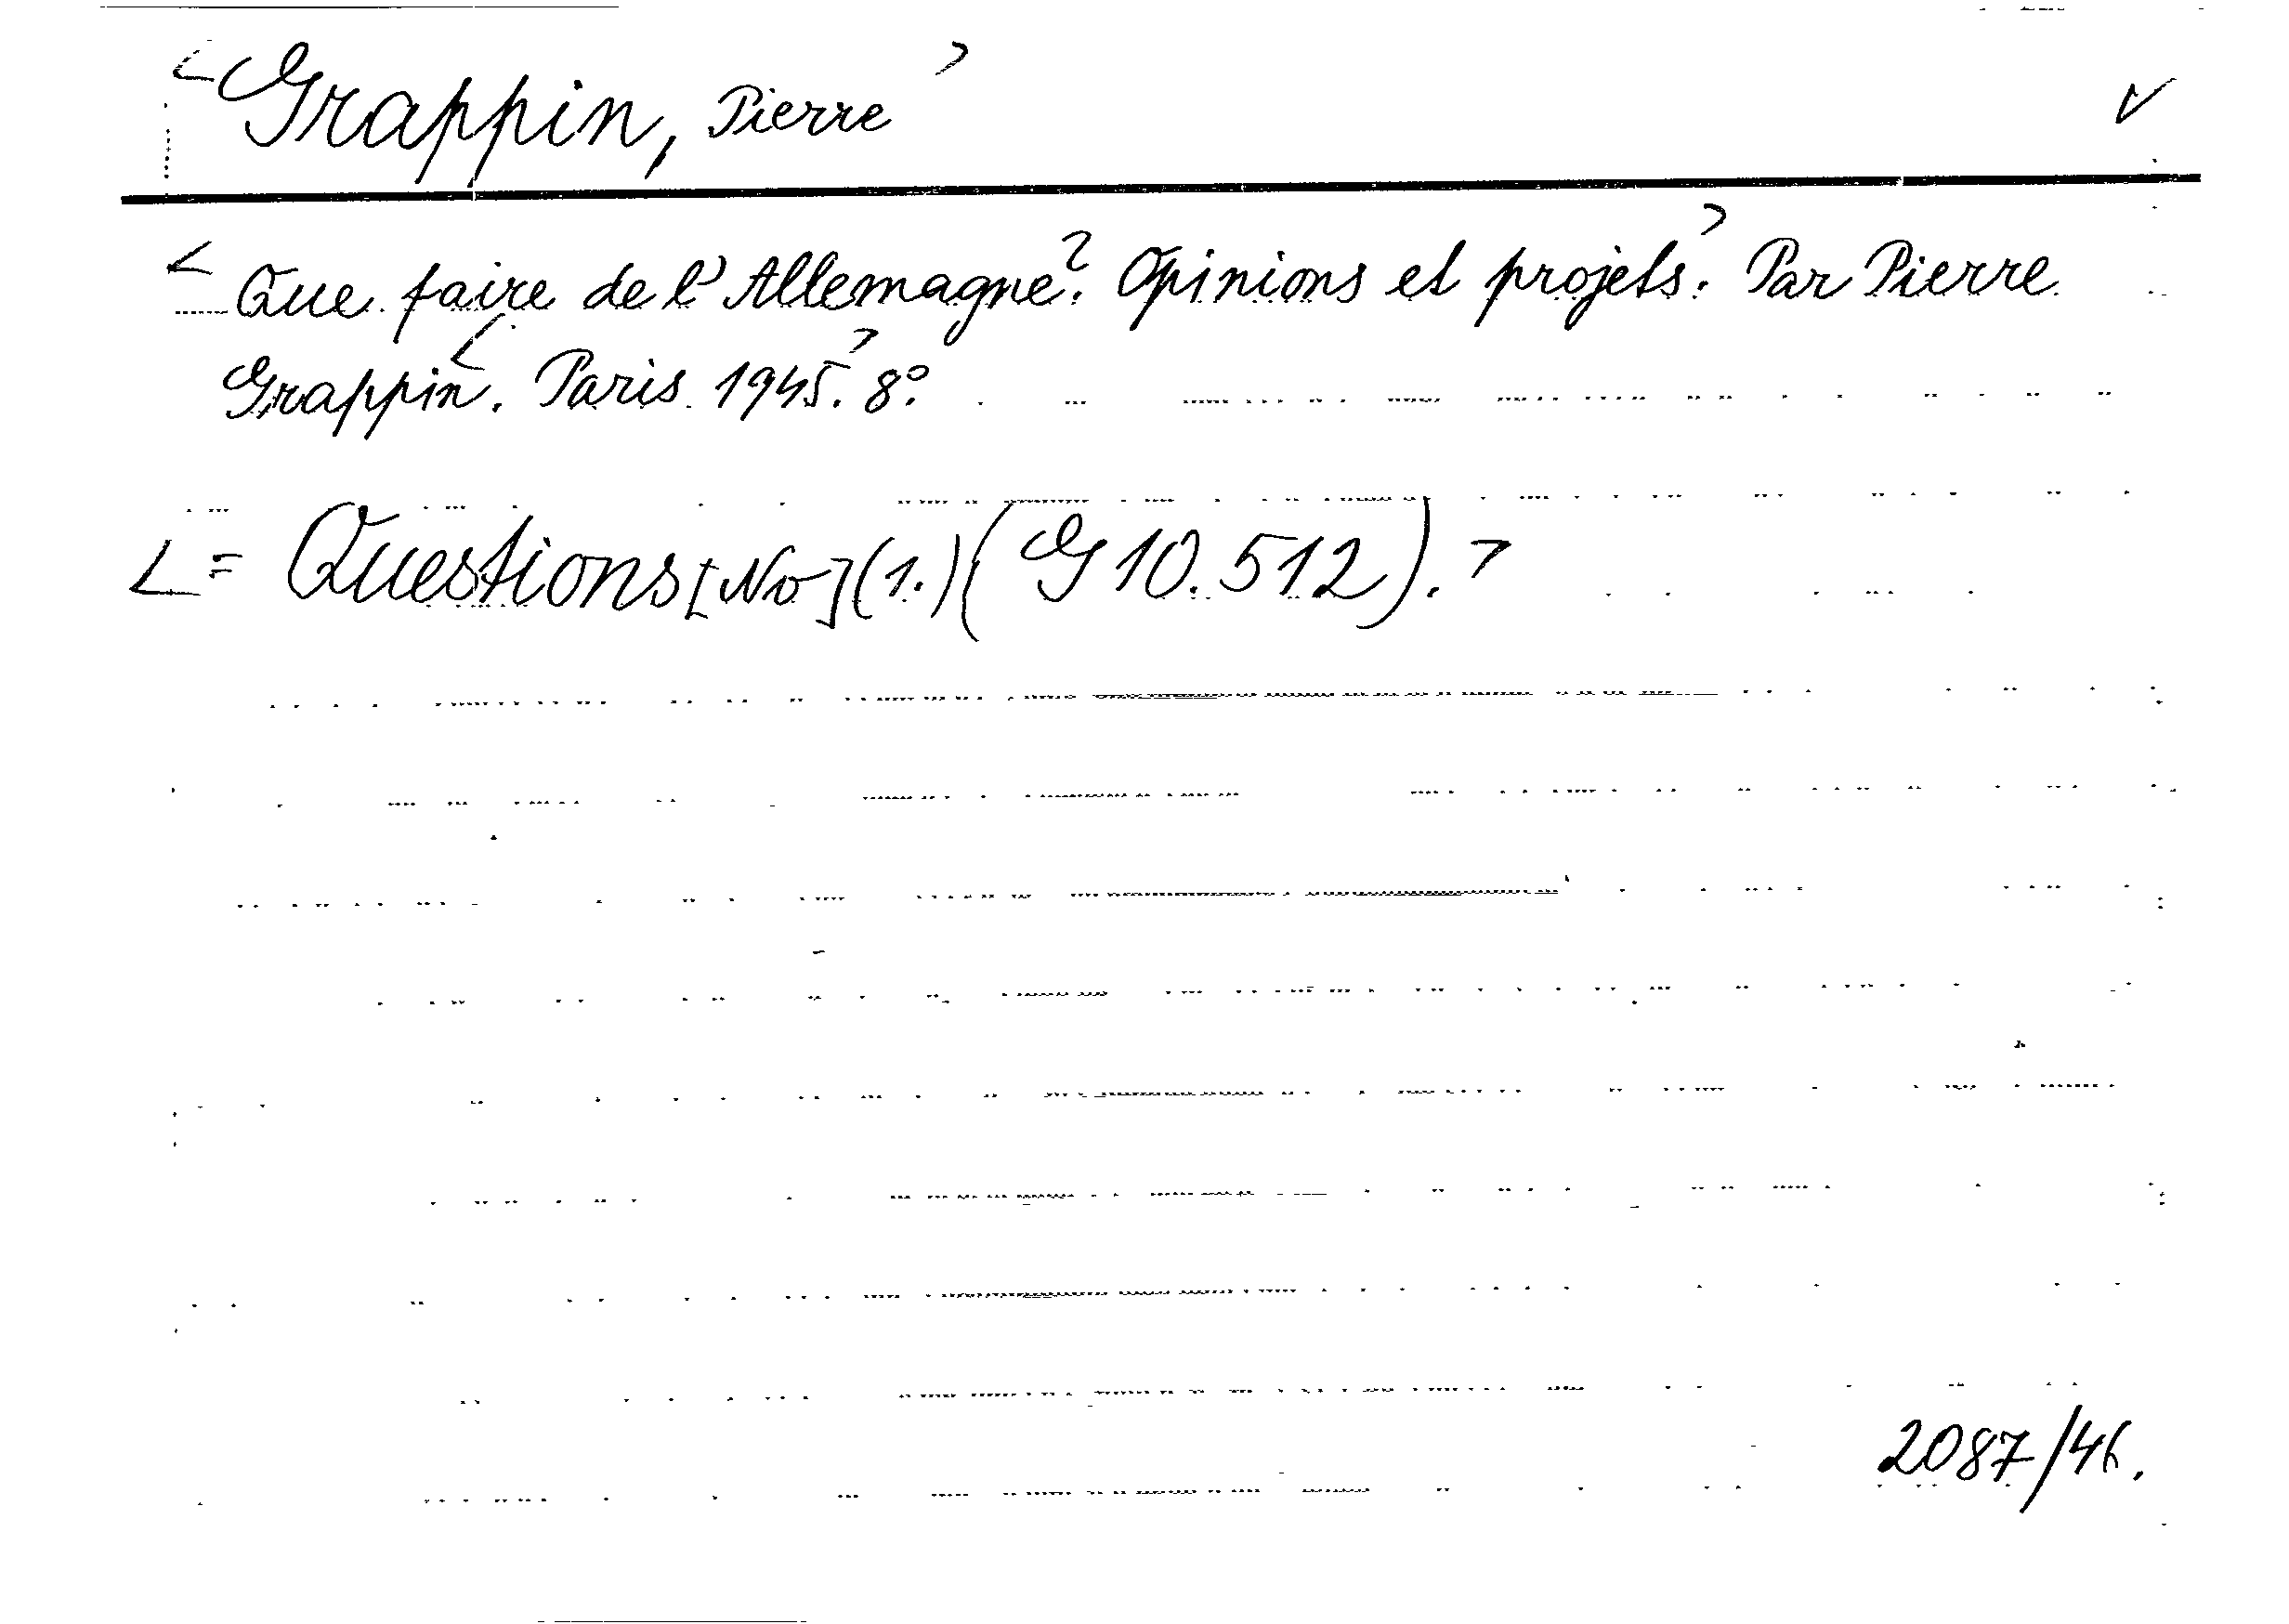 <Grappin, Pierre>
<Que faire de l'Allemagne? Opinions et projets.> Par Pierre
Grappin. <Paris 1945.> 8°.
<= Questions [No] (1.) (G 10.512).>
2087/46.